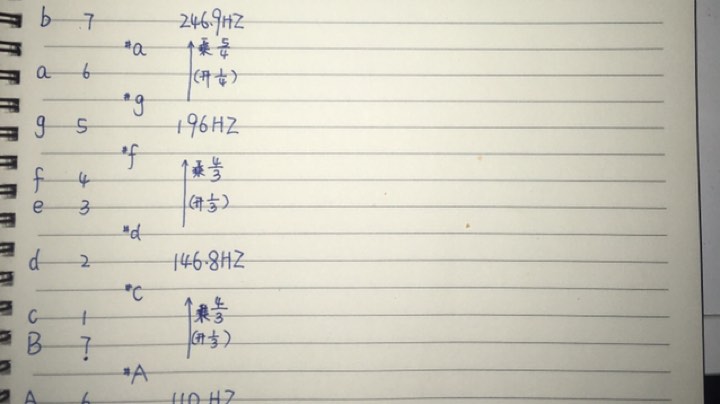 b 7 246.9HZ
#a 乘 5/4
a 6 (升 1/4)
#g
g 5 196HZ
#f 乘 4/3
f 4
e 3 (升 1/3)
#d
d 2 146.8HZ
#C
c 1 乘 4/3
B 7̣ (升 1/3)
#A
A 6 110 HZ